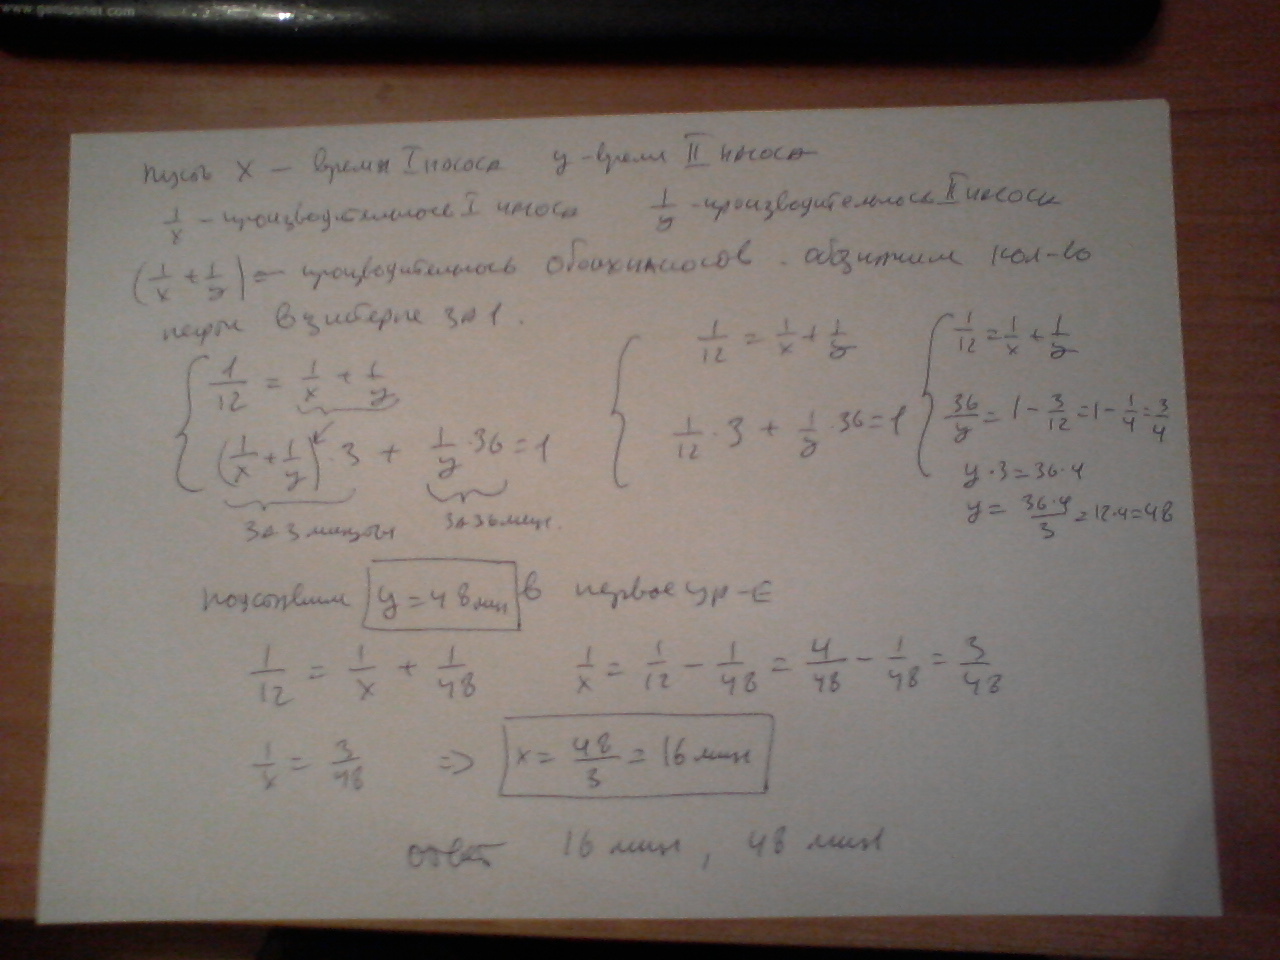 www.geniusnet.com
пусть x — время I насоса y - время II насоса
1/x - производительность I насоса 1/y - производительность II насоса
(1/x + 1/y) — производительность обоих насосов. обозначим кол-во
нефти в цистерне за 1.
{ 1/12 = 1/x + 1/y
(1/x + 1/y) · 3 + 1/y · 36 = 1
за 3 минуты за 36 мин.
{ 1/12 = 1/x + 1/y
1/12 · 3 + 1/y · 36 = 1
{ 1/12 = 1/x + 1/y
36/y = 1 - 3/12 = 1 - 1/4 = 3/4
y · 3 = 36 · 4
y = 36·4/3 = 12·4 = 48
подставим y = 48 мин в первое ур-е
1/12 = 1/x + 1/48 1/x = 1/12 - 1/48 = 4/48 - 1/48 = 3/48
1/x = 3/48 => x = 48/3 = 16 мин
ответ 16 мин, 48 мин